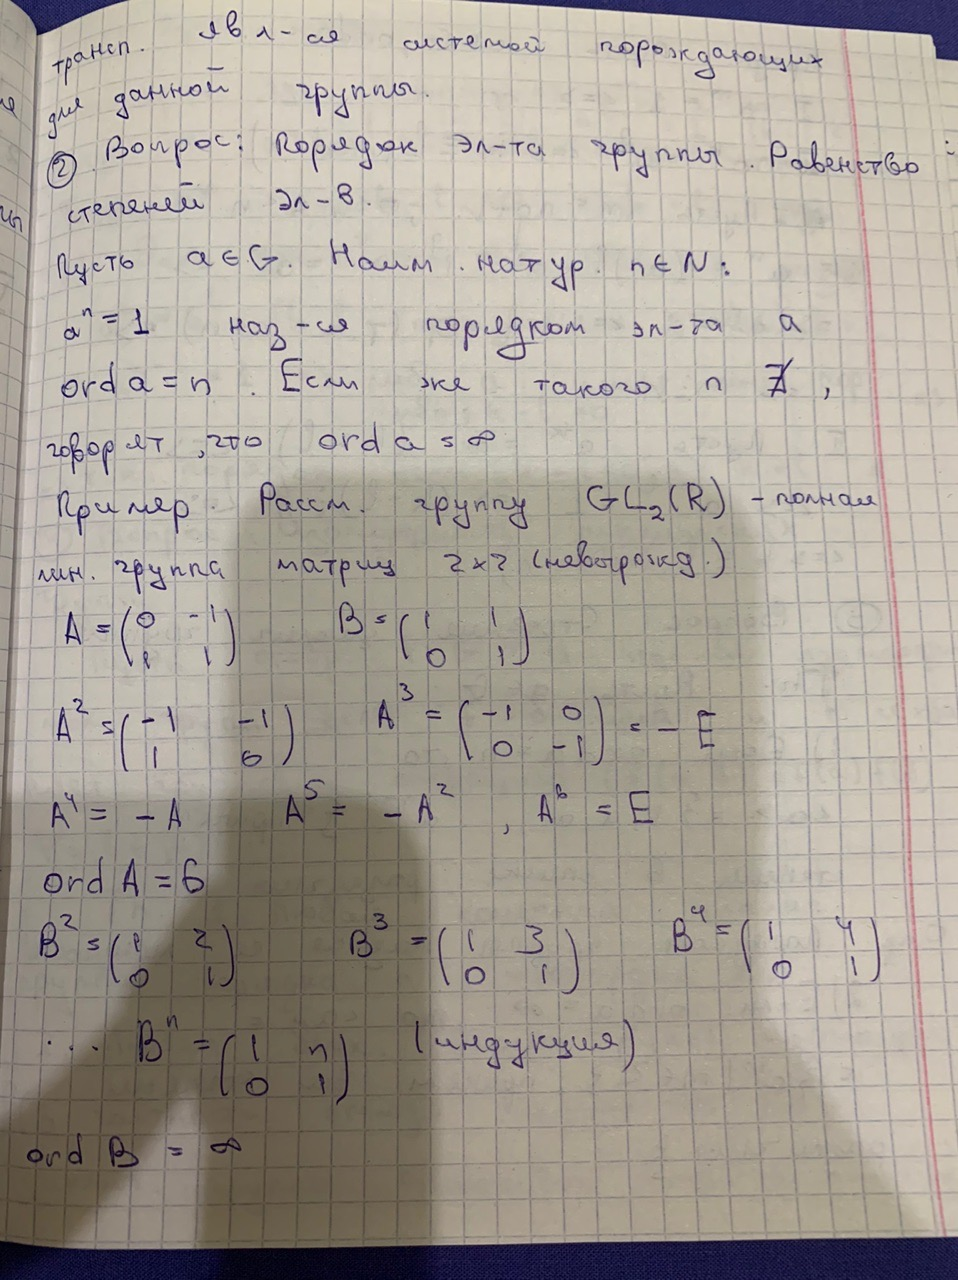 трансп. явл-ся системой порождающих
для данной группы.
② Вопрос: Порядок эл-та группы. Равенство
степеней эл-в.
Пусть a ∈ G. Наим. натур. n ∈ N:
aⁿ = 1 наз-ся порядком эл-та a
ord a = n. Если же такого n ∄,
говорят, что ord a = ∞
Пример. Рассм. группу GL₂(R) - полная
лин. группа матриц 2x2 (невырожд.)
A = (0 -1; 1 1) B = (1 1; 0 1)
A² = (-1 -1; 1 0) A³ = (-1 0; 0 -1) = - E
A⁴ = - A A⁵ = - A², A⁶ = E
ord A = 6
B² = (1 2; 0 1) B³ = (1 3; 0 1) B⁴ = (1 4; 0 1)
... Bⁿ = (1 n; 0 1) (индукция)
ord B = ∞